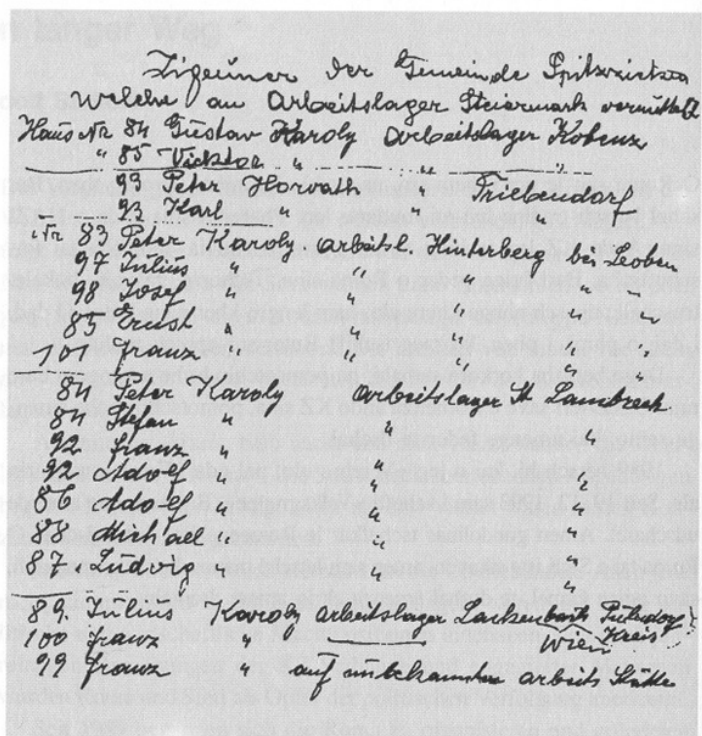 Zigeuner der Gemeinde Spitzzicken
Welche am Arbeitslager Steiermark vermittelt
Haus Nr. 84 Gustav Karoly Arbeitslager Kobenz
" 85 Vicktor " " "
93 Peter Horvath " Triebendorf
93 Karl " " "
Nr. 83 Peter Karoly Arbeitsl. Hinterberg bei Leoben
97 Julius " " " " "
98 Josef " " " " "
85 Ernst " " " " "
101 Franz " " " " "
84 Peter Karoly Arbeitslager St Lambrech
84 Stefan " " "
92 Franz " " "
92 Adolf " " "
86 Adolf " " "
88 Michael " " "
87 Ludvig " " "
89. Julius Karoly Arbeitslager Lackenbach
100 Franz " Wien Kreis
99 Franz " auf unbekannten Arbeits Stätte